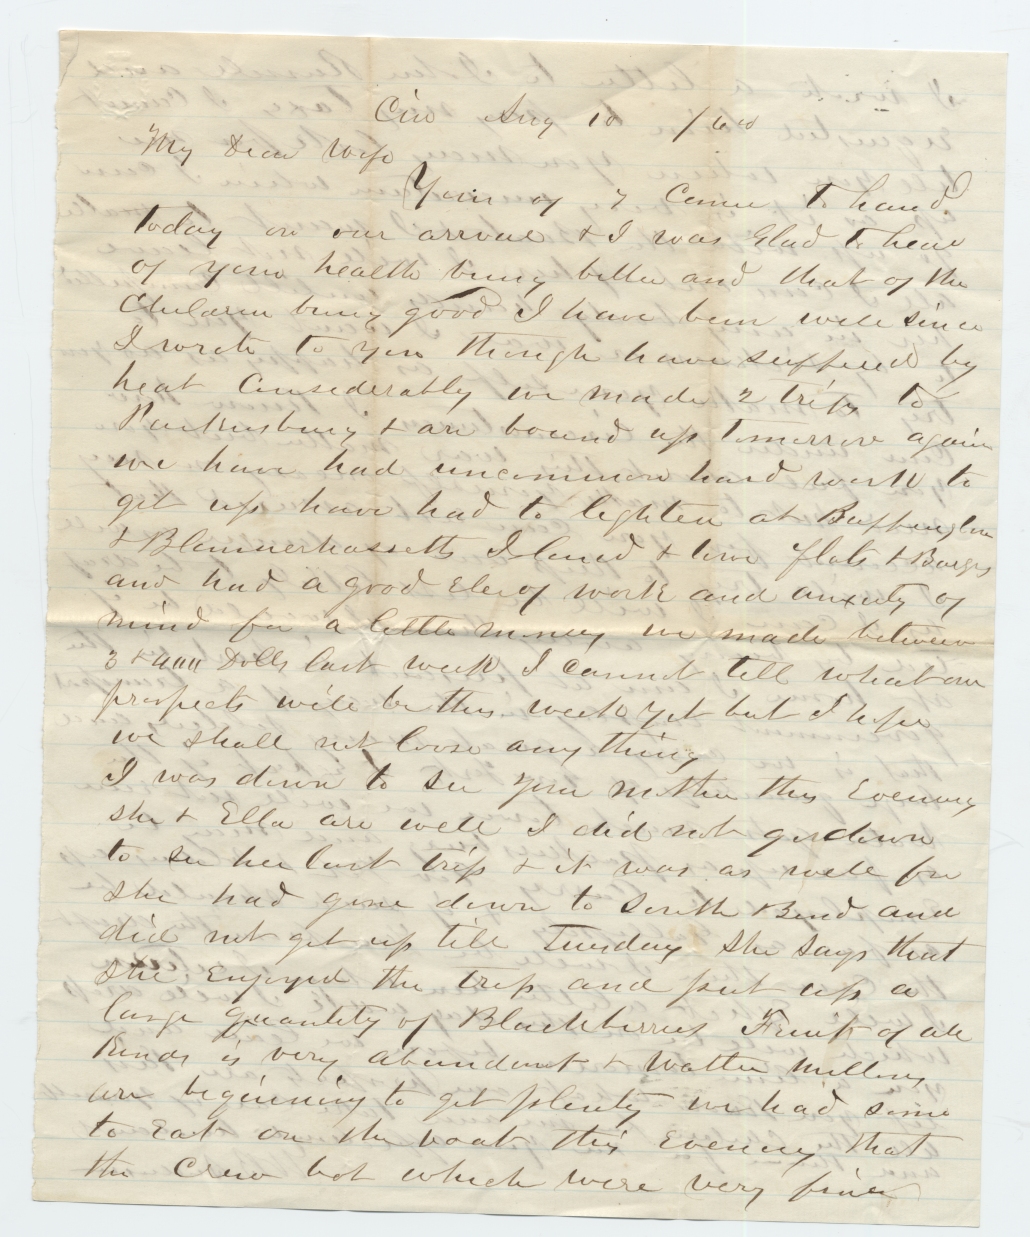 Cin Aug 10 /60
My Dear Wife
Your of 7 Came to hand
today on our arrival & I was Glad to hear
of your health being better and that of the
Children being good I have been well since
I wrote to you though have suffered by
heat Considerably we made 2 trips to
Parkersburg & are bound up tomorrow again
we have had uncommon hard work to
get up have had to lighten at Buffington
& Blannerhassetts Island & tow flats & Barges
and had a good Ele of work and anxiety of
mind for a little money we made between
3 & 400 Dolls last week I cannot tell what our
prospects will be this week yet but I hope
we shall not loose any thing
I was down to see your mother this Evening
she & Ella are well I did not go down
to see her last trip & it was as well for
she had gone down to South Bend and
did not get up till Tuesday She says that
she Enjoyed the trip and put up a
large quantity of Blackberries Fruit of all
kinds is very abundant & Watter mellons
are beginning to get plenty we had some
to Eat on the boat this Evening that
the Crew bot which were very fine